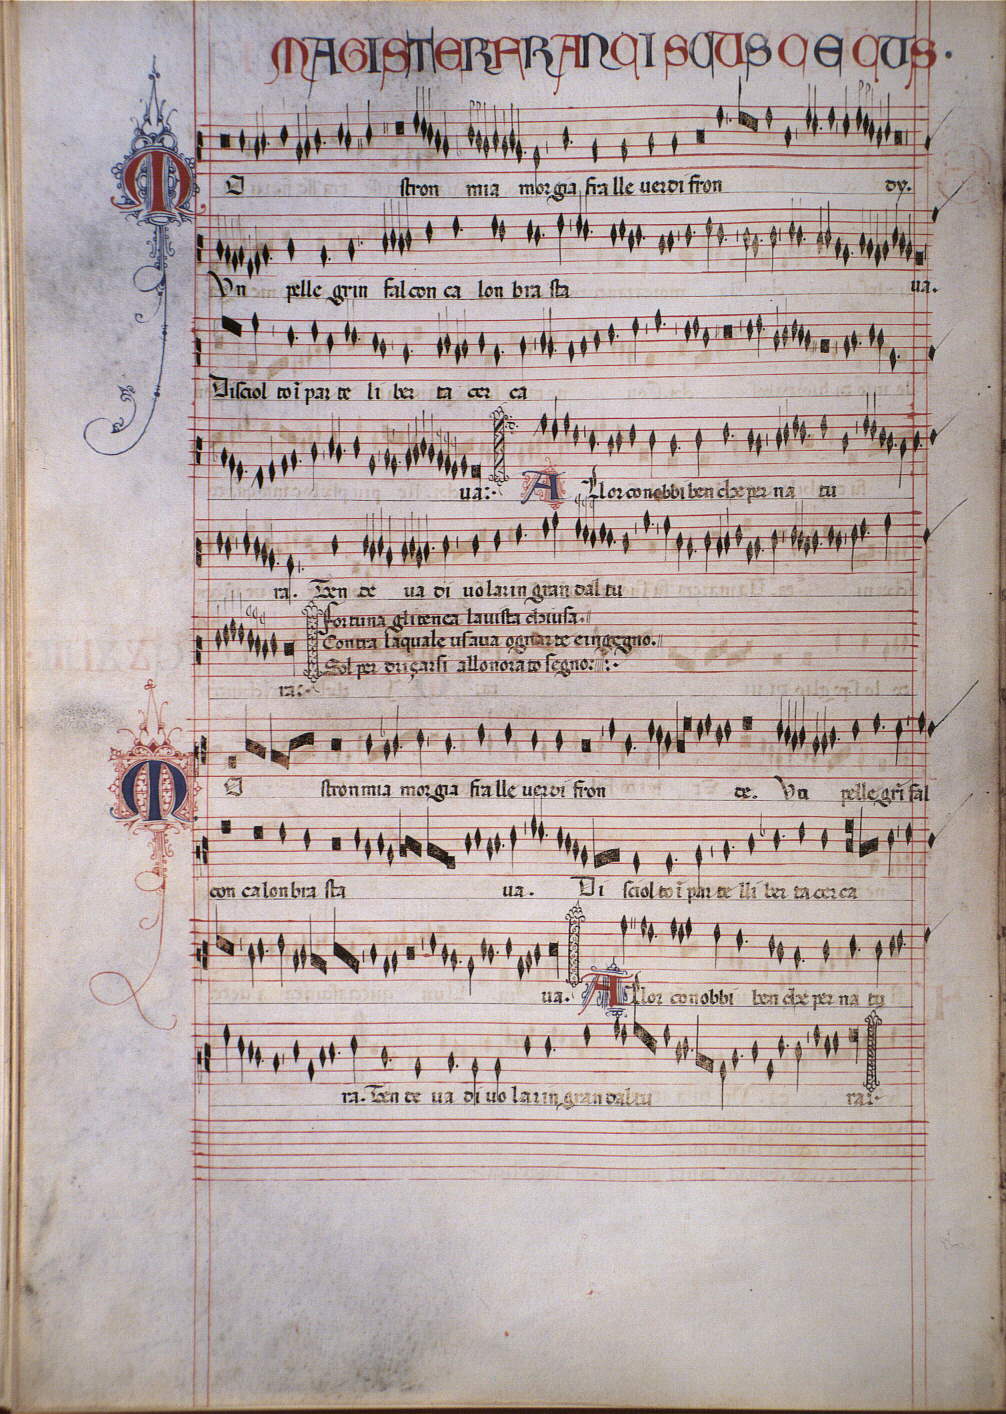 MAGISTER FRANCISCUS CECUS.
MO stron mia morgia fra lle uerdi fron dy.
Vn pelle grin falcon ca lon bra sta ua.
Disciol to ī par te li ber ta cer ca
ua: A Llor conobbi ben che per na tu
ra. Ben de ua di uolar in gran dal tu
Fortuna gli tenea la uista chiusa.
Contra laquale usaua ogni arte e ingegno.
Sol per driçarsi allonorato segno:
ra:
MO stron mia morgia fra lle uerdi fron de. Vn pelle gri fal
con ca lon bra sta ua. Di sciol to ī par te lli ber ta cer ca
ua. A Llor conobbi ben che per na tu
ra. Ben de ua di uo lar in gran dal tu ra: